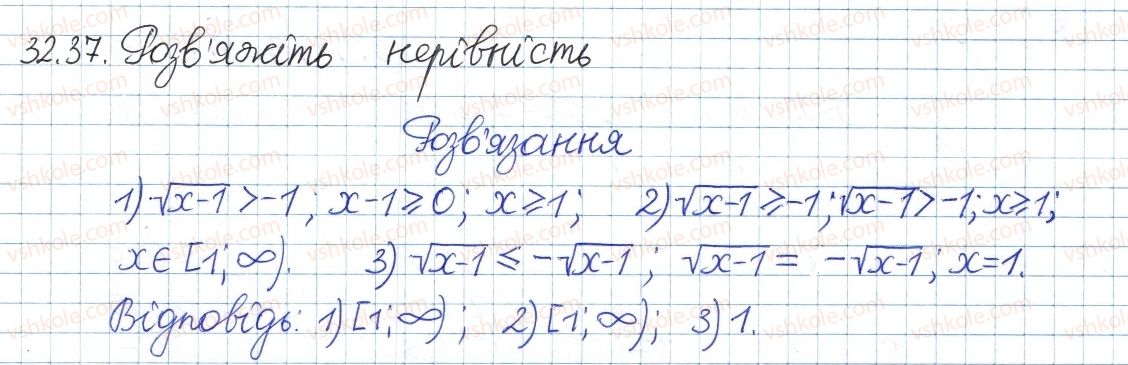 32.37. Розв'яжіть нерівність
Розв'язання
1) √x-1 > -1; x-1 ≥ 0; x ≥ 1; 2) √x-1 ≥ -1; √x-1 > -1; x ≥ 1;
x ∈ [1; ∞). 3) √x-1 ≤ -√x-1; √x-1 = -√x-1; x = 1.
Відповідь: 1) [1; ∞); 2) [1; ∞); 3) 1.